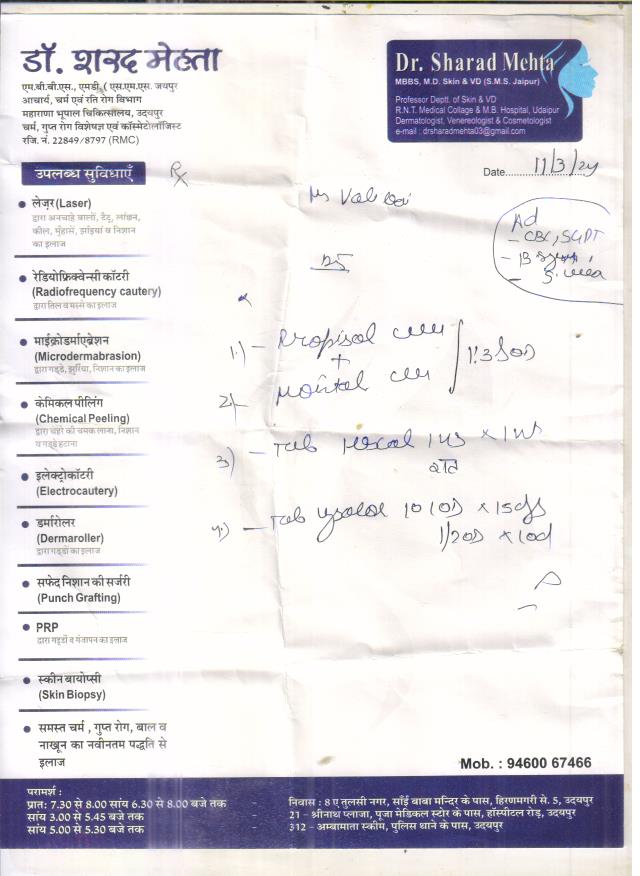 डॉ. शरद मेहता
एम.बी.बी.एस., एमडी. ( एस.एम.एस. जयपुर
आचार्य, चर्म एवं रति रोग विभाग
महाराणा भूपाल चिकित्सालय, उदयपुर
चर्म, गुप्त रोग विशेषज्ञ एवं कॉस्मेटोलॉजिस्ट
रजि. नं. 22849/8797 (RMC)
Dr. Sharad Mehta
MBBS, M.D. Skin & VD (S.M.S. Jaipur)
Professor Deptt. of Skin & VD
R.N.T. Medical Collage & M.B. Hospital, Udaipur
Dermatologist, Venereologist & Cosmetologist
e-mail : drsharadmehta03@gmail.com
Date 11/3/24
उपलब्ध सुविधाएँ
Rx
लेज़र (Laser)
द्वारा अनचाहे बालों, टैटू, लांछन,
कील, मुँहासे, झाइयां व निशान
का इलाज
रेडियोफ्रिक्वेन्सी कॉटरी
(Radiofrequency cautery)
द्वारा तिल व मस्से का इलाज
माईक्रोडर्माएब्रेशन
(Microdermabrasion)
द्वारा गड्डे, झुर्रिया, निशान का इलाज
केमिकल पीलिंग
(Chemical Peeling)
द्वारा चेहरे की चमक लाना, निशान
व गड्डे हटाना
इलेक्ट्रोकॉटरी
(Electrocautery)
डर्मारोलर
(Dermaroller)
द्वारा गड्डों का इलाज
सफेद निशान की सर्जरी
(Punch Grafting)
PRP
द्वारा गड्डों व गंजापन का इलाज
स्कीन बायोप्सी
(Skin Biopsy)
समस्त चर्म , गुप्त रोग, बाल व
नाखून का नवीनतम पद्धति से
इलाज
Ad
- CBC, SGPT
1.)
+
2)
3) - Tab
4.) - Tab 10 OD x 15
1/2 OD x 10d
Mob. : 94600 67466
परामर्श :
प्रातः 7.30 से 8.00 सांय 6.30 से 8.00 बजे तक
सांय 3.00 से 5.45 बजे तक
सांय 5.00 से 5.30 बजे तक
निवास : 8 ए तुलसी नगर, साँई बाबा मन्दिर के पास, हिरणमगरी से. 5, उदयपुर
21 - श्रीनाथ प्लाजा, पूजा मेडिकल स्टोर के पास, हॉस्पीटल रोड़, उदयपुर
312 - अम्बामाता स्कीम, पुलिस थाने के पास, उदयपुर